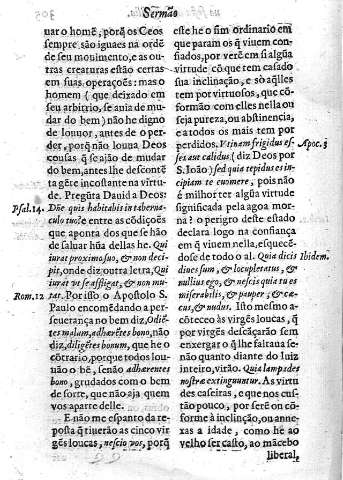 Sermão
uar o homẽ; porq̃ os Ceos
sempre são iguaes na ordẽ
de seu mouimento, e as ou-
tras creaturas estão certas
em suas operações: mas o
homem (que deixado em
seu arbitrio, se auia de mu-
dar do bem) não he digno
de louuor, antes de o per-
der, porq̃ não louua Deos
cousas q̃ se ajão de mudar
do bem, antes lhe descontẽ
ta gẽte incostante na virtu-
de. Pregũta Dauid a Deos:
Psal. 14. Dñe quis habitabit in taberna-
culo tuo? e entre as cõdições
que aponta dos que se hão
de saluar hũa dellas he. Qui
iurat proximo suo, & non deci-
pit, onde diz outra letra, Qui
iurat vt se affligat, & non mu-
Rom. 12 tat. Por isso o Apostolo S.
Paulo encomẽdando a per-
seuerança no bem diz, Odiẽ-
tes malum, adhærẽtes bono, não
diz, diligẽtes bonum, que he o
cõtrario, porque todos lou-
uão o bẽ, senão adhærentes
bono, grudados com o bem
de sorte, que não aja quem
vos aparte delle.
E não me espanto da re-
posta q̃ tiuerão as cinco vir
gẽs loucas, nescio vos, porq̃
este he o fim ordinario em
que param os q̃ viuem con-
fiados, por verẽ em si algũa
virtude cõ que tem casado
sua inclinação, e só aq̃lles
tem por virtuosos, que cõ-
formão com elles nella ou
seja pureza, ou abstinencia,
e a todos os mais tem por
perdidos. Vtinam frigidus es- Apoc. 3
ses aut calidus (diz Deos por
S. Ioão) sed quia tepidus es in-
cipiam te euomere, pois não
é milhor ter algũa virtude
significada pela agoa mor-
na? o perigro deste estado
declara logo na confiança
em q̃ viuem nella, esquecẽ-
dose de todo o al. Quia dicis Ibidem.
diues sum, & locupletatus, &
nullius ego, & nescis quia tu es
miserabilis, & pauper, & cæ-
cus, & nudus. Isto mesmo a-
cõteceo às virgẽs loucas, q̃
por virgẽs descãçarão sem
enxergar o q̃ lhe faltaua se-
não quanto diante do luiz
inteiro, virão. Quia lampades
nostræ extinguuntur. As virtu
des caseiras, e que nos cus-
tão pouco, por serẽ on cõ-
forme à inclinção, ou anne-
xas a idade, como he ao
velho ser casto, ao mãcebo
liberal,